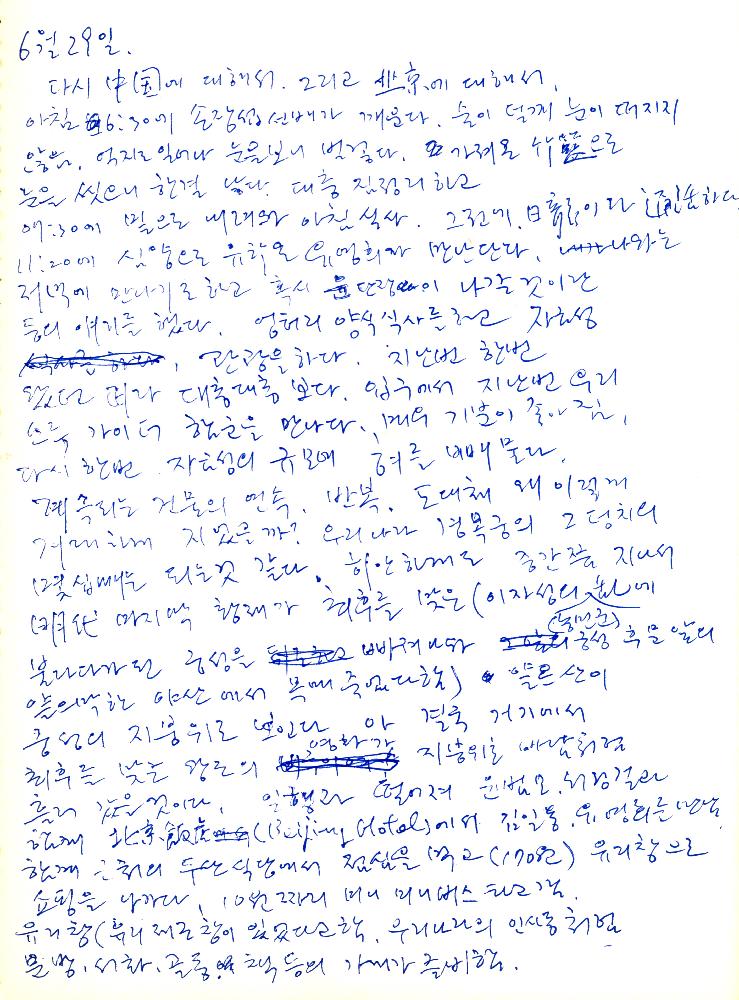 6월 29일.
다시 中国에 대해서. 그리고 北京에 대해서.
아침 6:30에 손장섭 선배가 깨운다. 술이 덜깨 눈이 떠지지
않음. 억지로 일어나 눈을보니 벌겋다. 가져온 으로
눈을 씻으니 한결 낫다. 대충 짐정리하고
07:30에 밑으로 내려와 아침식사. 그런데, 이라
11:20에 심양으로 유학온 유명희가 만난단다. 나와는
저녁에 만나기로하고 혹시 단장이 나갈것이란
등의 얘기를 했다. 엉터리 양식식사를하고 자금성
, 관광을하다. 지난번 한번
왔었던 대충대충 보다. 입구에서 지난번 우리
가이더 만나다. 매우 기분이 좋아 짐.
다시 한번 자금성의 규모에 혀를 내빼 물다.
계속되는 건물의 연속, 반복. 도대체 왜 이렇게
거대하게 지었을까? 우리나라 경복궁의 그 덩치의
몇십배는 되는것 같다. 하안하게도 중간쯤 지나서
明代 마지막 황제가 최후를 맞은 (이자성의 난에
(농민군)
불타다가 된 궁성을 빠져나와 궁성 후문 앞의
앝으막한 야산에서 목매 죽었다함) 앝은산이
궁성의 지붕위로 보인다. 아 결국 거기에서
최후를 맞는 왕조의 영화가 지붕위로 바람처럼
흘러 갔을것이다. 일행과 떨어져 윤범모, 최경결과
함께 北京飯店(Beijing Hotel)에서 김일동, 유명희를 만남
함께 근처의 두산식당에서 점심을 먹고 (170원) 유리창으로
쇼핑을 나가다. 10번짜리 미니버스타고감.
유리창(유리제조창이 있었다고함. 우리나라의 인사동처럼
문방, 서화, 골동, 책 등의 가게가 즐비함.